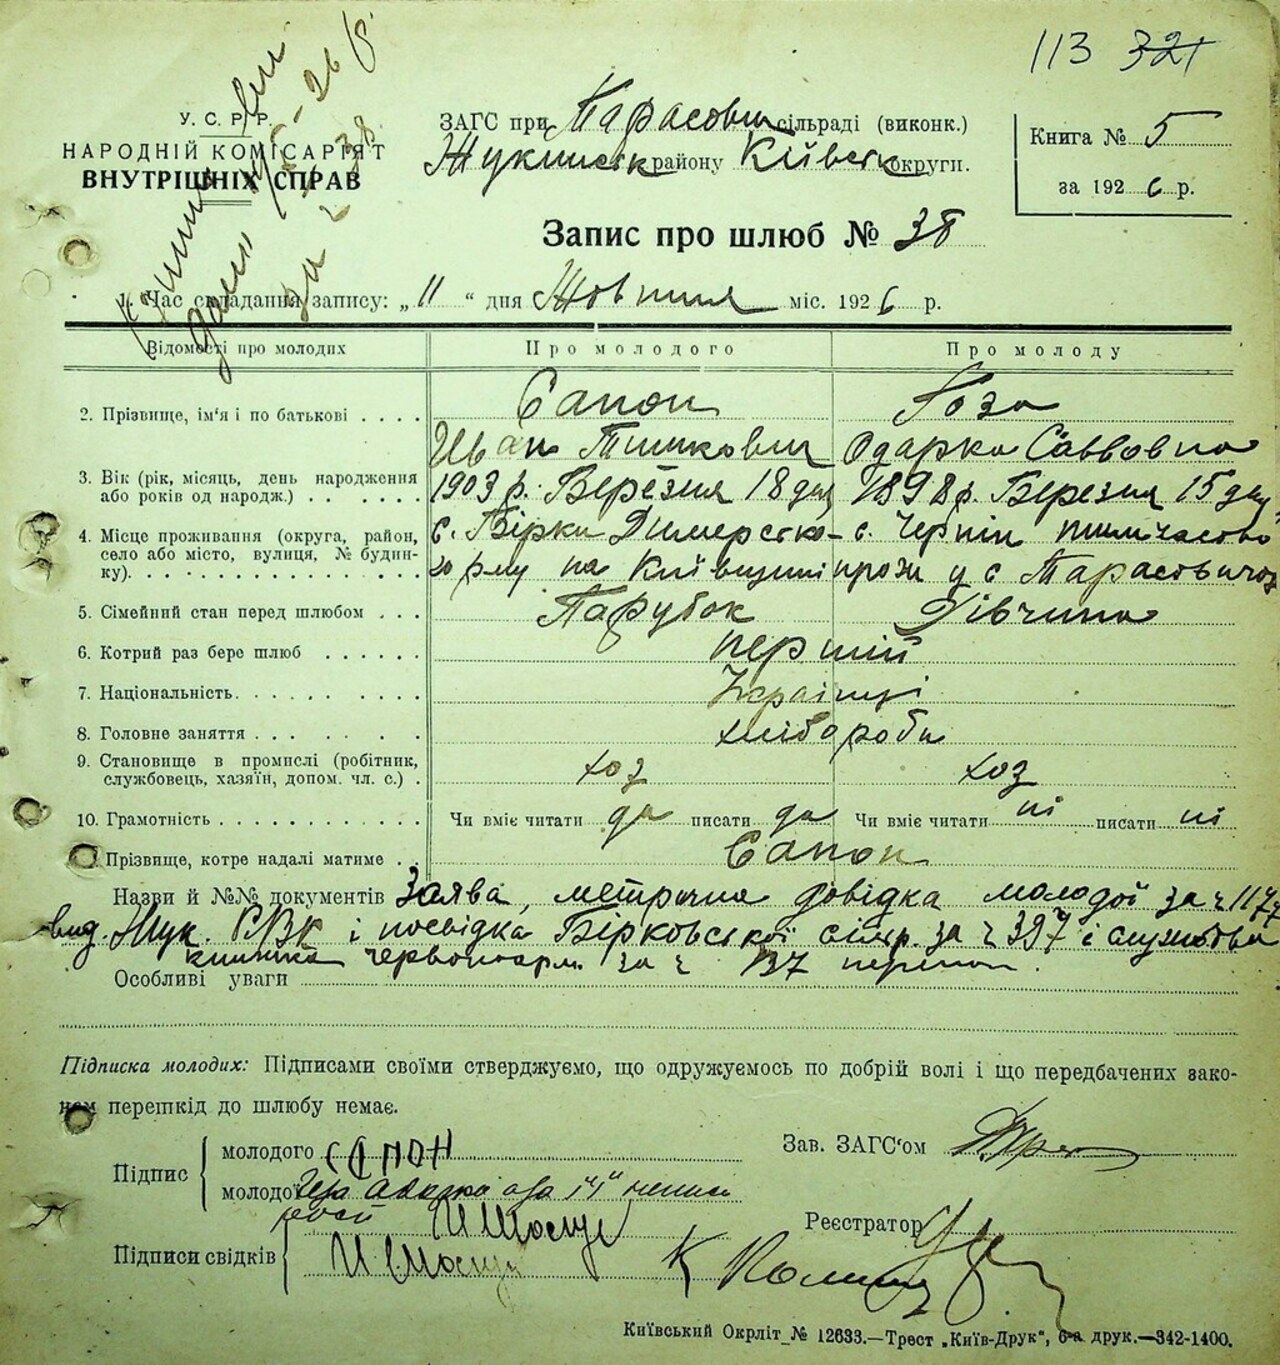 113 321
У. С. Р. Р.
НАРОДНІЙ КОМІСАРІЯТ
ВНУТРІШНІХ СПРАВ
ЗАГС при Тарасович сільраді (виконк.)
Жукинськ району Київськ округи.
Книга № 5
за 1926 р.
Запис про шлюб № 38
1. Час складання запису: „11“ дня Жовтня міс. 1926 р.
Відомості про молодих Про молодого Про молоду
2. Прізвище, ім'я і по батькові . . . . Сапон Гоза
Иван Тишкович Одарка Саввовна
3. Вік (рік, місяць, день народження або років од народж.) . . . . . . 1903 р. Березня 18 дня 1898 р. Березня 15 дня
4. Місце проживання (округа, район, село або місто, вулиця, № будинку). с. Бірки Димерсько- с. Чернін тимчасово
го р-ну на Київщині прож у с Тарасовичах
5. Сімейний стан перед шлюбом . . . Парубок Дівчина
6. Котрий раз бере шлюб . . . . . . перший
7. Національність. . . . . . . . . . Українці
8. Головне заняття . . . . . . . . . хлібороби
9. Становище в промислі (робітник, службовець, хазяїн, допом. чл. с.) . хоз хоз
10. Грамотність . . . . . . . . . . . . Чи вміє читати да писати да Чи вміє читати ні писати ні
Прізвище, котре надалі матиме . . Сапон
Назви й №№ документів Заява, метрична довідка молодої за ч
вид. Жук. РВК і посвідка Бірковської сільр. за ч 397 і службова
книжка червоноарм. за ч 137
Особливі уваги
Підписка молодих: Підписами своїми стверджуємо, що одружуємось по добрій волі і що передбачених зако-
ном перешкід до шлюбу немає.
Підпис
молодого САПОН
молодої
Зав. ЗАГС'ом
Реєстратор
Підписи свідків
Київський Окрліт № 12633.—Трест „Київ-Друк“, 6-а друк.—342-1400.